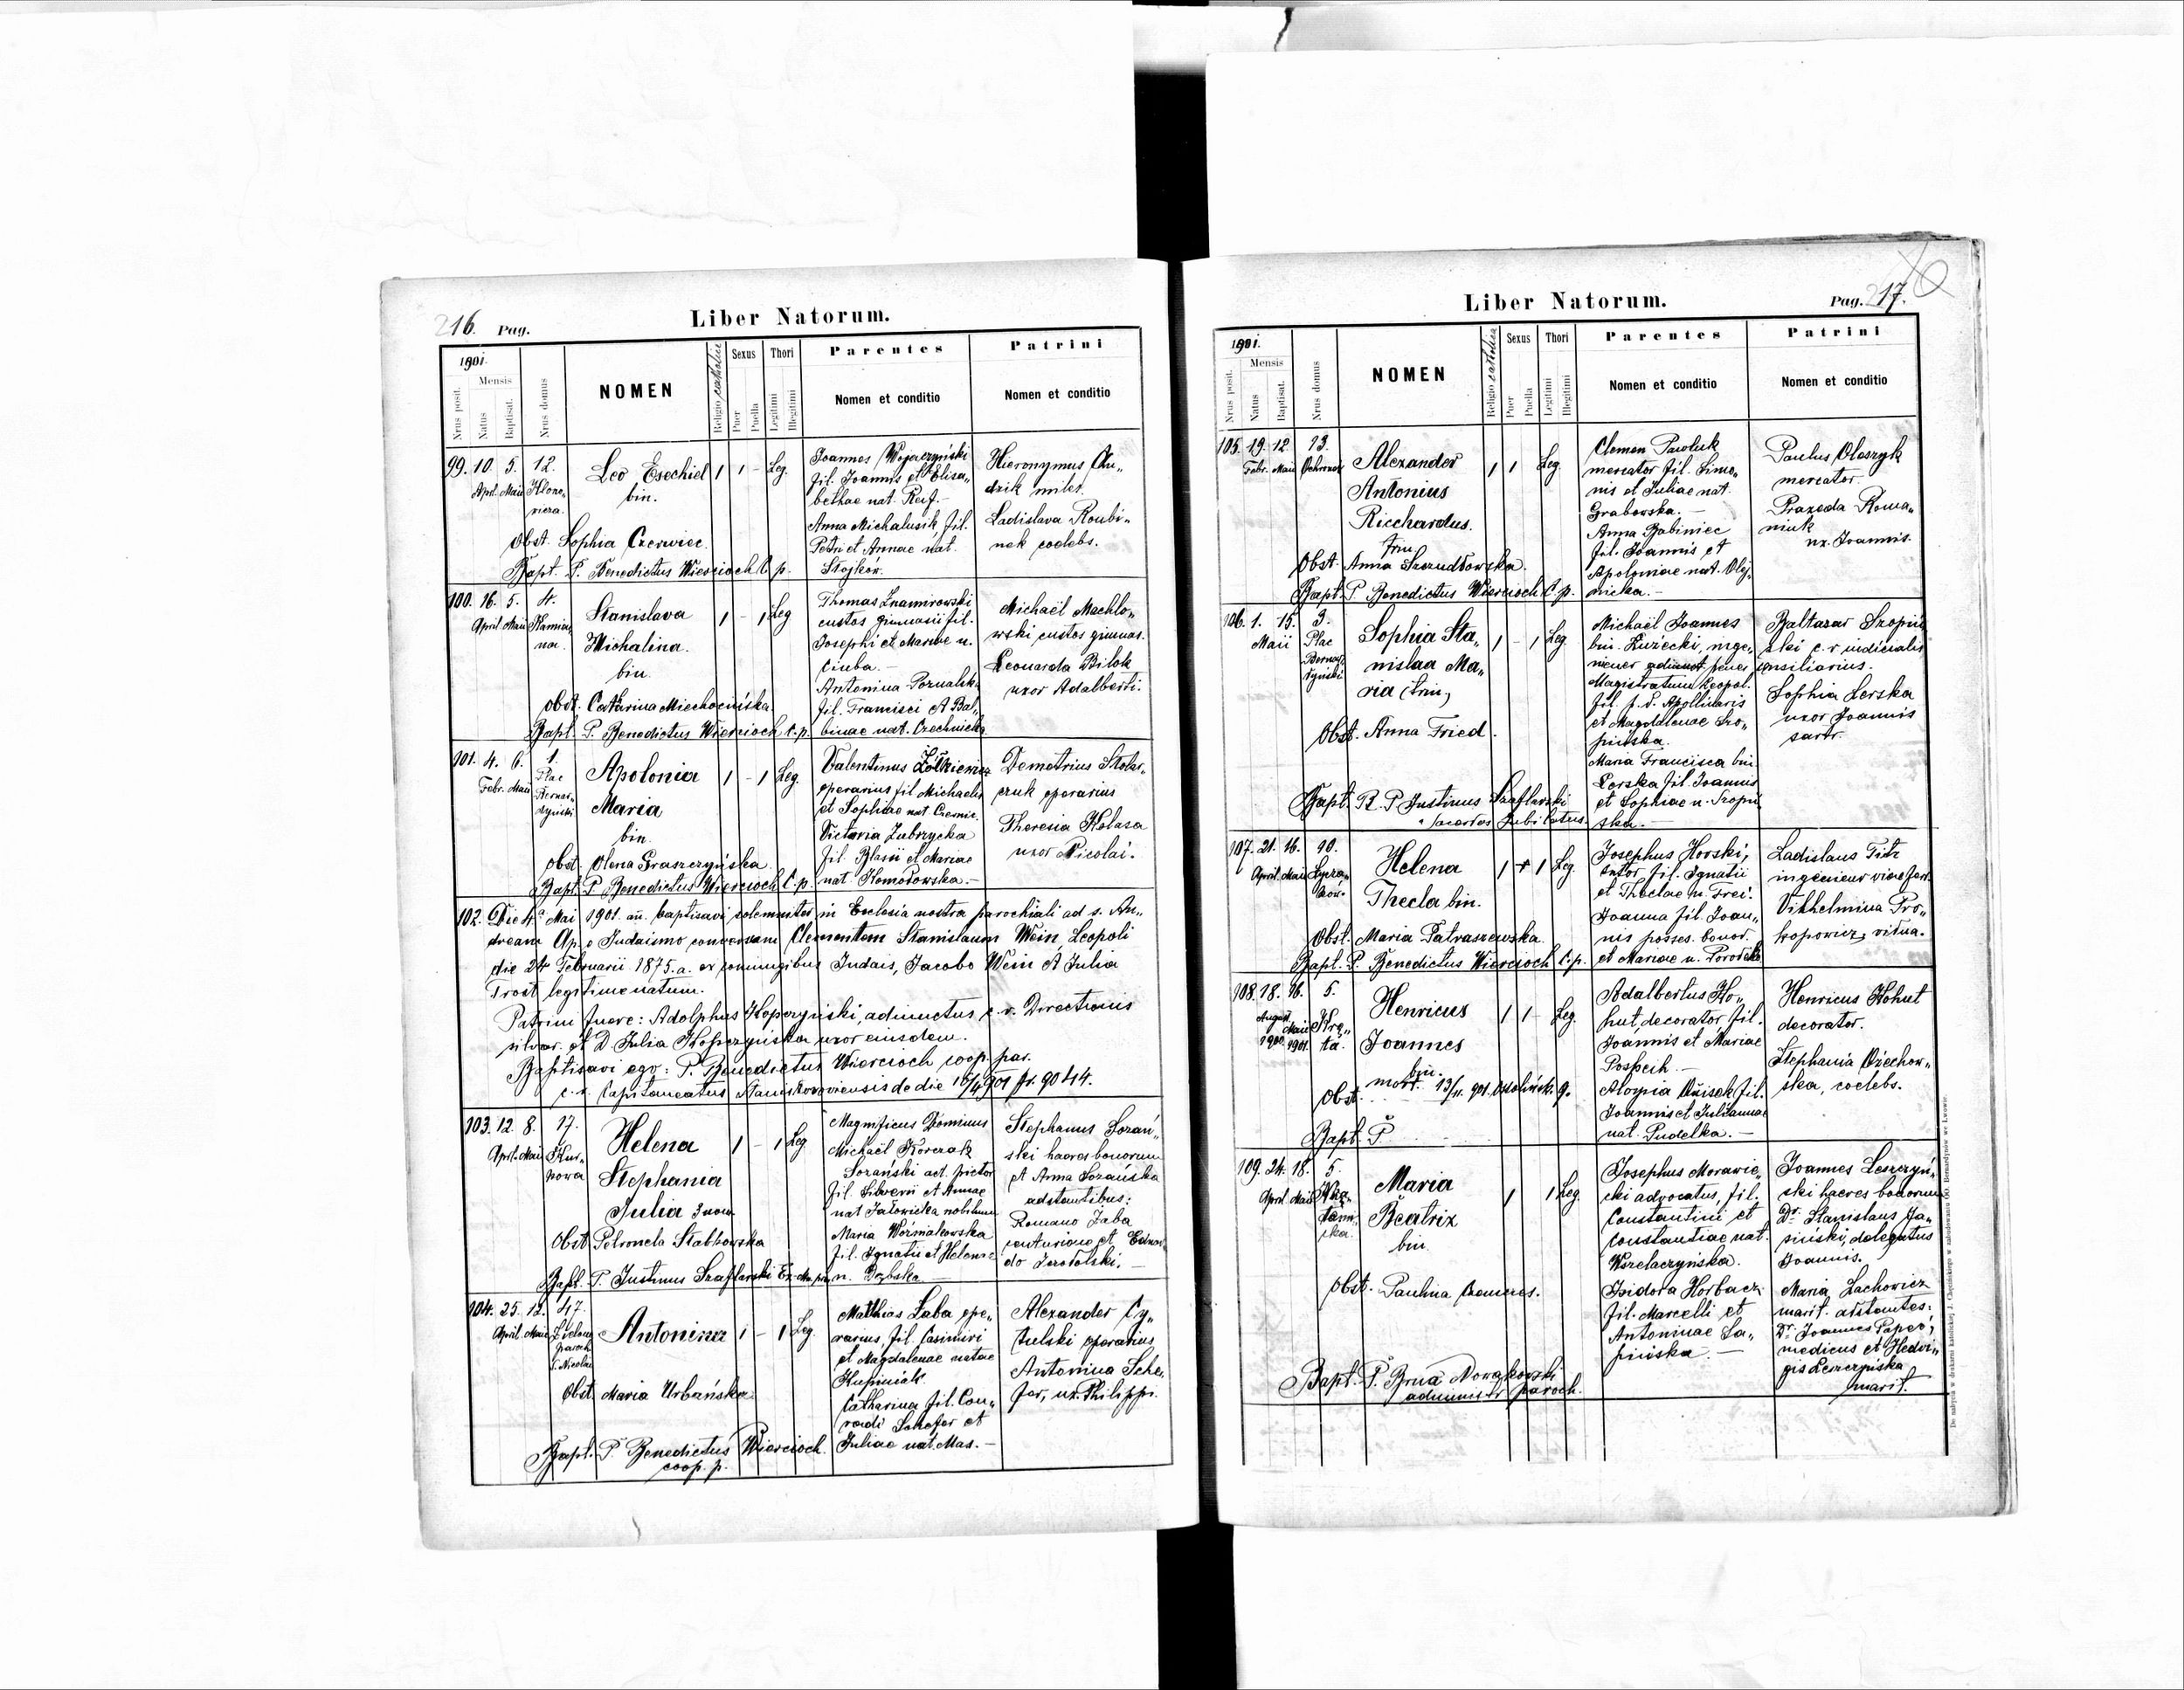 216. Pag.
Liber Natorum.
1901.
Nrus posit.
Mensis
Natus
Baptisat.
Nrus domus
NOMEN
Religio catholica
Sexus
Puer
Puella
Thori
Legitimi
Illegitimi
Parentes
Nomen et conditio
Patrini
Nomen et conditio
99. 10. 5. 12.
April. Maii Klono-
wicza.
Leo Esechiel
bin.
1 1 - Leg.
Obst. Sophia Czerwiec.
Bapt. P. Benedictus Wiercioch C. p.
Joannes Wojarczyński
fil. Joannis et Elisa-
bethae nat. Reif.-
Anna Michalusik, fil.
Petri et Annae nat.
Stojków.
Hieronymus An-
drik miles.
Ladislava Roubi-
nek coelebs.
100. 16. 5. 4.
April. Maii
Stanislava
Michalina.
bin.
1 - 1 Leg
Obst. Catharina Miechocińska.
Bapt. P. Benedictus Wiercioch C. p.
Thomas Znamirowski
custos gimnasii fil.
Josephi et Mariae n.
Ciuba.-
Antonina
fil. Francisci et Bal-
binae nat. Czechnicka
Michaël Machlo-
wski custos gimnas.
Leonarda Bilok
uxor Adalberti.
101. 4. 6. 1.
Febr. Maii Plac
Bernar-
dyński
Apolonia
Maria
bin.
1 - 1 Leg.
Obst. Olena Graszczyńska
Bapt. P. Benedictus Wiercioch C. p.
Valentinus Żółkiewicz
operarius fil Michaelis
et Sophiae nat
Victoria Zubrzycka
fil. Blasii et Mariae
nat. Komodowska.-
Demetrius Stolar-
czuk operarius
Theresia Kolasa
uxor Nicolai.
102. Die 4ª Mai 1901. an. baptisavi solemniter in Ecclesia nostra parochiali ad s. An-
dream Ap. e Judaismo conversum Clementem Stanislaum Wein, Leopoli
die 24 Februarii 1875. a. ex coniungibus Judais, Jacobo Wein et Julia
Trost legitime natum.
Patrini fuere: Adolphus Kopczyński, adiunctus c. r. Directionis
silvar. et D. Julia Kopczyńska uxor eiusdem.
Baptisavi ego: P. Benedictus Wiercioch coop. par.
c. r. Capitaneatus de die 16/4 901 9044.
103. 12. 8. 17.
April. Maii Kur-
kowa
Helena
Stephania
Julia 3 nom
1 - 1 Leg.
Obst. Petronela Stabkowska
Bapt. P. Justinus Szaflarski
Magnificus Dominus
Michaël Korczak
Sozański act. pictor
fil. Silverii et Annae
nat nobilium
Maria Woźniakowska
fil. Ignatii et Helenae
n. Dębska
Stephanus Sozań-
ski haeres bonorum
et Anna Sozańska
adstantibus:
Romano Żaba
centurione et Edwar-
do
104. 25. 12. 47.
April. Maii
paroch.
S. Nicolai
Antonina
1 - 1 Leg.
Obst. Maria Urbańska
Bapt. P. Benedictus Wiercioch
coop. p.
Matthias Laba ope-
rarius, fil. Casimiri
et Magdalenae natae
Kupiniak
Catharina fil. Con-
radi Schefer et
Juliae nat. Mas.-
Alexander Cy-
tulski operarius
Antonina Sche-
fer, ux. Philippi.
Liber Natorum.
Pag. 217.
1901.
Nrus posit.
Mensis
Natus
Baptisat.
Nrus domus
NOMEN
Religio catholica
Sexus
Puer
Puella
Thori
Legitimi
Illegitimi
Parentes
Nomen et conditio
Patrini
Nomen et conditio
105. 19. 12. 13.
Febr. Maii Ochronek
Alexander
Antonius
Ricchardus.
trin
1 1 Leg.
Obst. Anna Szerudłowska.
Bapt. P Benedictus Wiercioch C. p.
Clemen Pawluk
mercator fil. Simo-
nis et Juliae nat.
Grabowska.-
Anna Babiniec
fil. Joannis et
Apoloniae nat. Olej-
nicka.-
Paulus Oleszyk
mercator.
Praxeda Roma-
niuk
ux. Joannis.
106. 1. 15. 3.
Maii Plac
Bernar-
dyński
Sophia Sta-
nislaa Ma-
ria (trin)
1 - 1 Leg.
Obst. Anna Fried.
Bapt. R. P. Justinus Szaflarski
sacerdos Jubilatus.
Michaël Joannes
bin. Łuzecki, inge-
nieur adiunct penes
Magistratum Leopol.
fil. p. d. Apollinaris
et Magdalenae Szo-
pińska.
Maria Francisca bin
Lerska fil. Joannis
et Sophiae n. Szopiń
ska.-
Baltazar Szopiń
ski c. r. iudicialis
consiliarius.
Sophia Lerska
uxor Joannis
sartr.
107. 21. 16. 10.
April. Maii Łycza-
ków.
Helena
Thecla bin.
1 + 1 Leg.
Obst. Maria Patraszewska.
Bapt. P. Benedictus Wiercioch C. p.
Josephus Horski,
sutor fil. Ignatii
et Theclae n. Frei.
Joanna fil. Joan-
nis posses. bonor.
et Mariae n.
Ladislaus Titz
ingenieur viae ferr.
Vilhelmina Pro-
kopowicz, vidua.
108. 18. 16. 5.
August. Maii Krę-
1900. 1901. ta.
Henricus
Joannes
bin.
mort. 13/11. 901. Ossolińsk. 9.
1 1 - Leg.
Obst.
Bapt. P
Adalbertus Ko-
hut, decorator, fil.
Joannis et Mariae
Pospech.-
Aloysia fil.
Joannis et Julianna
nat. Pudelka.-
Henricus Kohut
decorator.
Stephania Orzechow-
ska, coelebs.
109. 24. 18. 5.
April. Maii
Maria
Beatrix
bin.
1 1 Leg.
Obst. Paulina
Bapt. P. Bruno Nowakowski
administr. paroch.
Josephus Morawie-
cki advocatus, fil.
Constantini et
Constantiae nat.
Wszelaczyńska.
Isidora Horbacz
fil. Marcelli et
Antoninae Ła-
pińska.-
Joannes Leszczyń-
ski haeres bonorum
Dr. Stanislaus Ja-
siński, delegatus
Joannis.
Maria Lachowicz
marit. adstantes:
Dr. Joannes Papeé,
medicus et Hedvi-
gis Leszczyńska
marit.